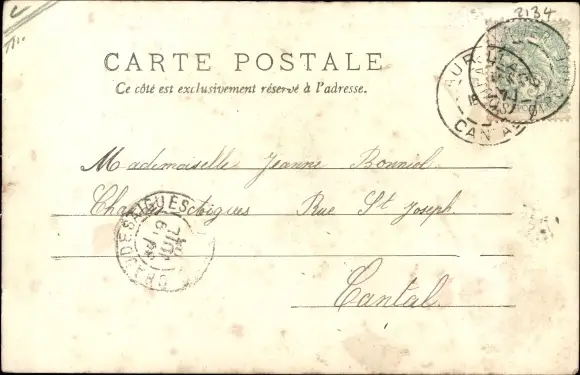 2134
CARTE POSTALE
Ce côté est exclusivement réservé à l'adresse.
Mademoiselle Jeanne Bonniol
Chaudesaigues Rue St Joseph
Cantal
CANTAL